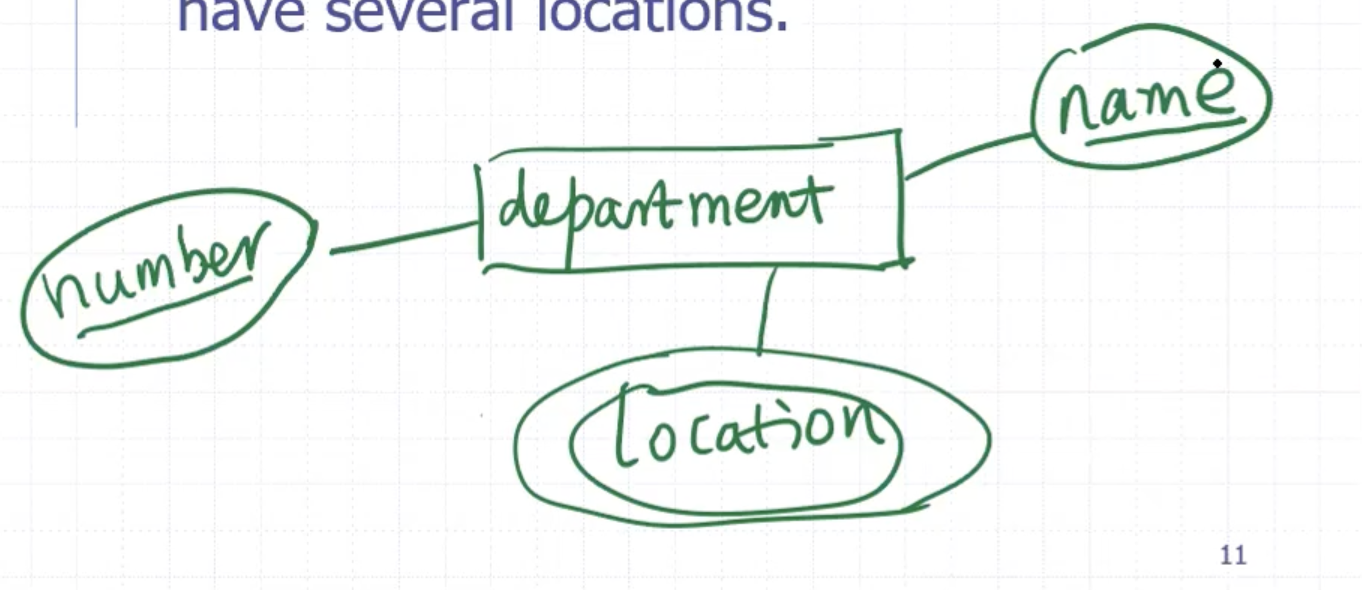 have several locations.
name
department
number
location
11